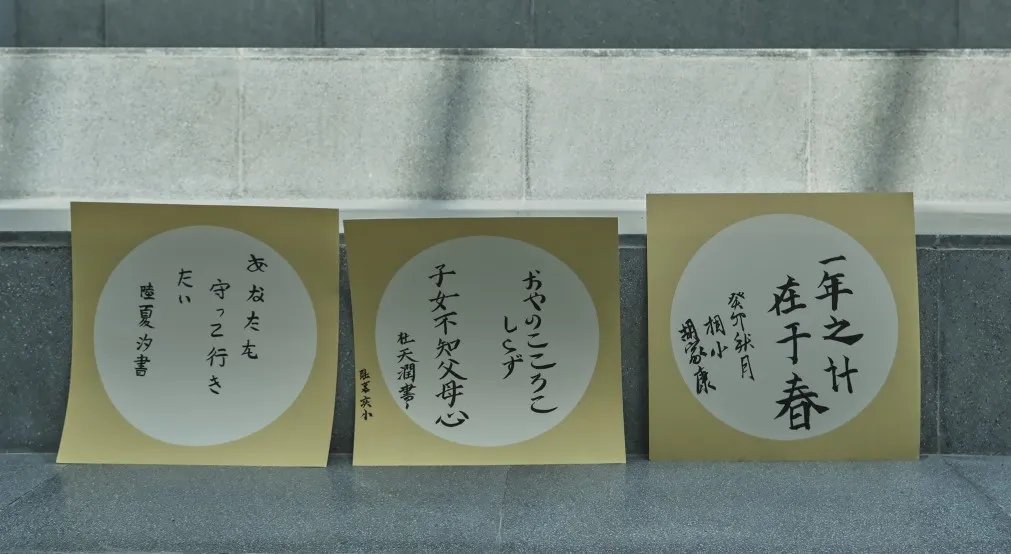 あなたを
守って行き
たい
陸夏汐書
おやのこころこ
しらず
子女不知父母心
杜天潤書
一年之计
在于春
癸卯秋月
桐小